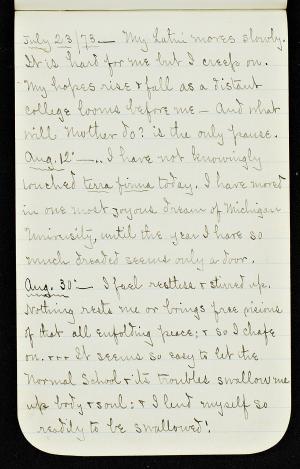 July 23/73 — My Latin moves slowly.
It is hard for me but I creep on.
My hopes rise & fall as a distant
college looms before me — And what
will Mother do? is the only pause.
Aug. 12: — .. I have not knowingly
touched terra firma today. I have moved
in one most joyous dream of Michigan
University, until the year I have so
much dreaded seems only a door.
Aug. 30: — I feel restless & stirred up.
Nothing rests me or brings free visions
of that all enfolding peace; & so I chafe
on. + + + It seems so easy to let the
Normal School & its troubles swallow me
up body & soul: & I lend myself so
readily to be swallowed!